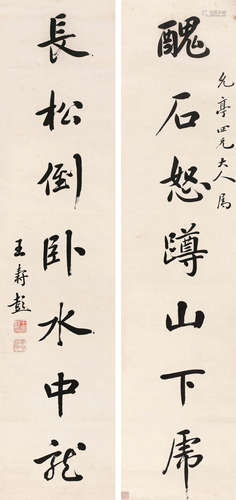 醜石怒蹲山下虎
允亭四兄大人属
長松倒臥水中龍
王壽彭